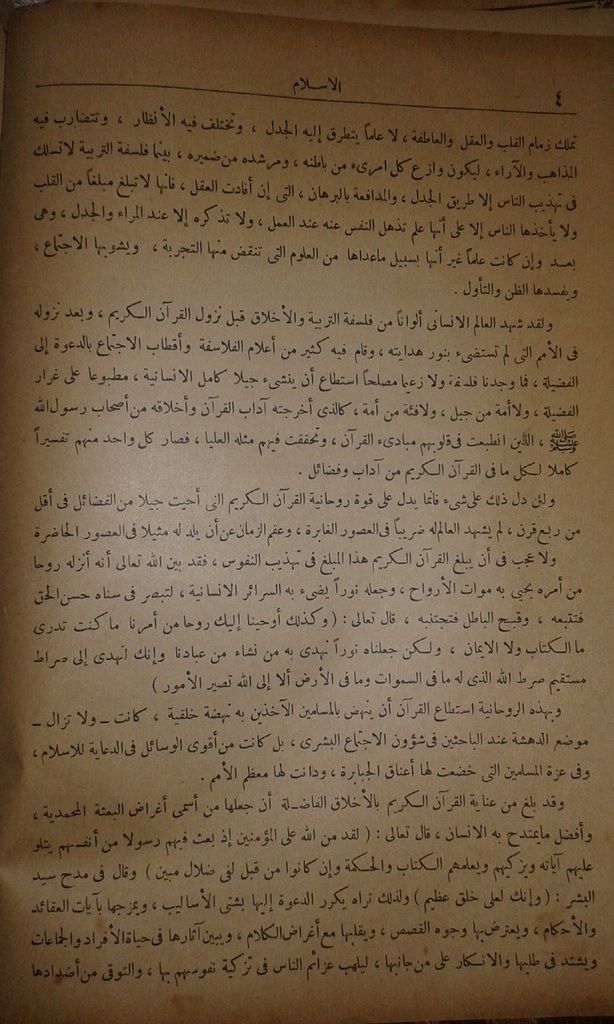 الاسلام
٤
تملك زمام القلب والعقل والعاطفة ، لا عاماً يتطرق إليه الجدل ، وتختلف فيه الأنظار ، وتتضارب فيه
المذاهب والآراء ، ليكون وازع كل امرىء من باطنه ، ومرشده من ضميره ، بينما فلسفة التربية لا تسلك
فى تهذيب الناس إلا طريق الجدل ، والمدافعة بالبرهان ، التى إن أفادت العقل ، فانها لا تبلغ مبلغاً من القلب
ولا يأخذها الناس إلا على أنها علم تذهل النفس عنه عند العمل ، ولا تذكره إلا عند المراء والجدل ، وهى
بعد وإن كانت علماً غير أنها بسبيل ماعداها من العلوم التى تنقض منها التجربة ، ويشوبها الاجتماع ،
ويفسدها الظن والتأول .
ولقد شهد العالم الانسانى ألواناً من فلسفة التربية والأخلاق قبل نزول القرآن الكريم ، وبعد نزوله
فى الأمم التى لم تستضىء بنور هدايته ، وقام فيه كثير من أعلام الفلاسفة وأقطاب الاجتماع بالدعوة إلى
الفضيلة ، فما وجدنا فلسفة ولا زعيما مصلحاً استطاع أن ينشىء جيلا كامل الانسانية ، مطبوعا على غرار
الفضيلة ، ولا أمة من جيل ، ولا فئة من أمة ، كالذى أخرجته آداب القرآن وأخلاقه من أصحاب رسول الله
ﷺ ، الذين انطبعت فى قلوبهم مبادىء القرآن ، وتحققت فيهم مثله العليا ، فصار كل واحد منهم تفسيراً
كاملا لكل ما فى القرآن الكريم من آداب وفضائل .
ولئن دل ذلك على شىء فانما يدل على قوة روحانية القرآن الكريم التى أحيت جيلا من الفضائل فى أقل
من ربع قرن ، لم يشهد العالم له ضريباً فى العصور الغابرة ، وعقم الزمان عن أن يلد له مثيلا فى العصور الحاضرة
ولا عجب فى أن يبلغ القرآن الكريم هذا المبلغ فى تهذيب النفوس ، فقد بين الله تعالى أنه أنزله روحا
من أمره يحيى به موات الأرواح ، وجعله نوراً يضىء به السرائر الانسانية ، لتبصر فى سناه حسن الحق
فتتبعه ، وقبيح الباطل فتجتنبه ، قال تعالى : ( وكذلك أوحينا إليك روحا من أمرنا ما كنت تدرى
ما الكتاب ولا الايمان ، ولكن جعلناه نوراً نهدى به من نشاء من عبادنا وإنك لتهدى إلى صراط
مستقيم صرط الله الذى له ما فى السموات وما فى الأرض ألا إلى الله تصير الأمور )
وبهذه الروحانية استطاع القرآن أن ينهض بالمسلمين الآخذين به نهضة خلقية ، كانت ـ ولا تزال ـ
موضع الدهشة عند الباحثين فى شؤون الاجتماع البشرى ، بل كانت من أقوى الوسائل فى الدعاية للاسلام ،
وفى عزة المسلمين التى خضعت لها أعناق الجبابرة ، ودانت لها معظم الأمم .
وقد بلغ من عناية القرآن الكريم بالأخلاق الفاضلة أن جعلها من أسمى أغراض البعثة المحمدية ،
وأفضل مايمتدح به الانسان ، قال تعالى : ( لقد من الله على المؤمنين إذ بعث فيهم رسولا من أنفسهم يتلو
عليهم آياته ويزكيهم ويعلمهم الكتاب والحكمة وإن كانوا من قبل لفى ضلال مبين ) وقال فى مدح سيد
البشر : ( وإنك لعلى خلق عظيم ) ولذلك تراه يكرر الدعوة إليها بشتى الأساليب ، ويمزجها بآيات العقائد
والأحكام ، ويعترض بها وجوه القصص ، ويقلبها مع أغراض الكلام ، ويبين آثارها فى حياة الأفراد والجماعات
ويشتد فى طلبها والانكار على من جانبها ، ليلهب عزائم الناس فى تزكية نفوسهم بها ، والتوقى من أضدادها